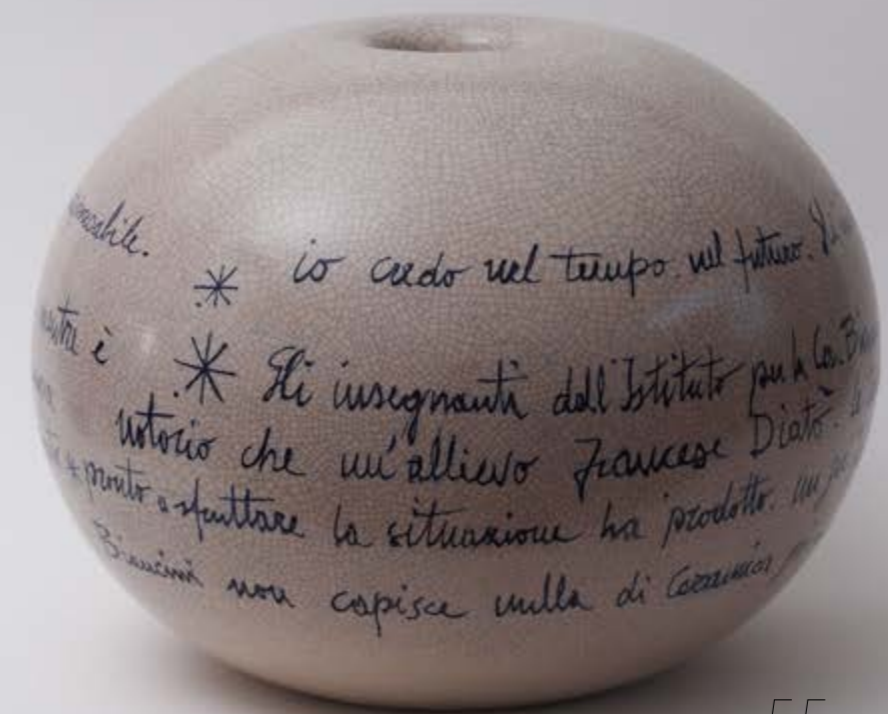 io credo nel tempo nel futuro.
è * Gli insegnanti dell'Istituto per la Cer.
notorio che un'allievo Francese Diatò.
pronto a sfruttare la situazione ha prodotto. un
Biancini non capisce nulla di Ceramica
55